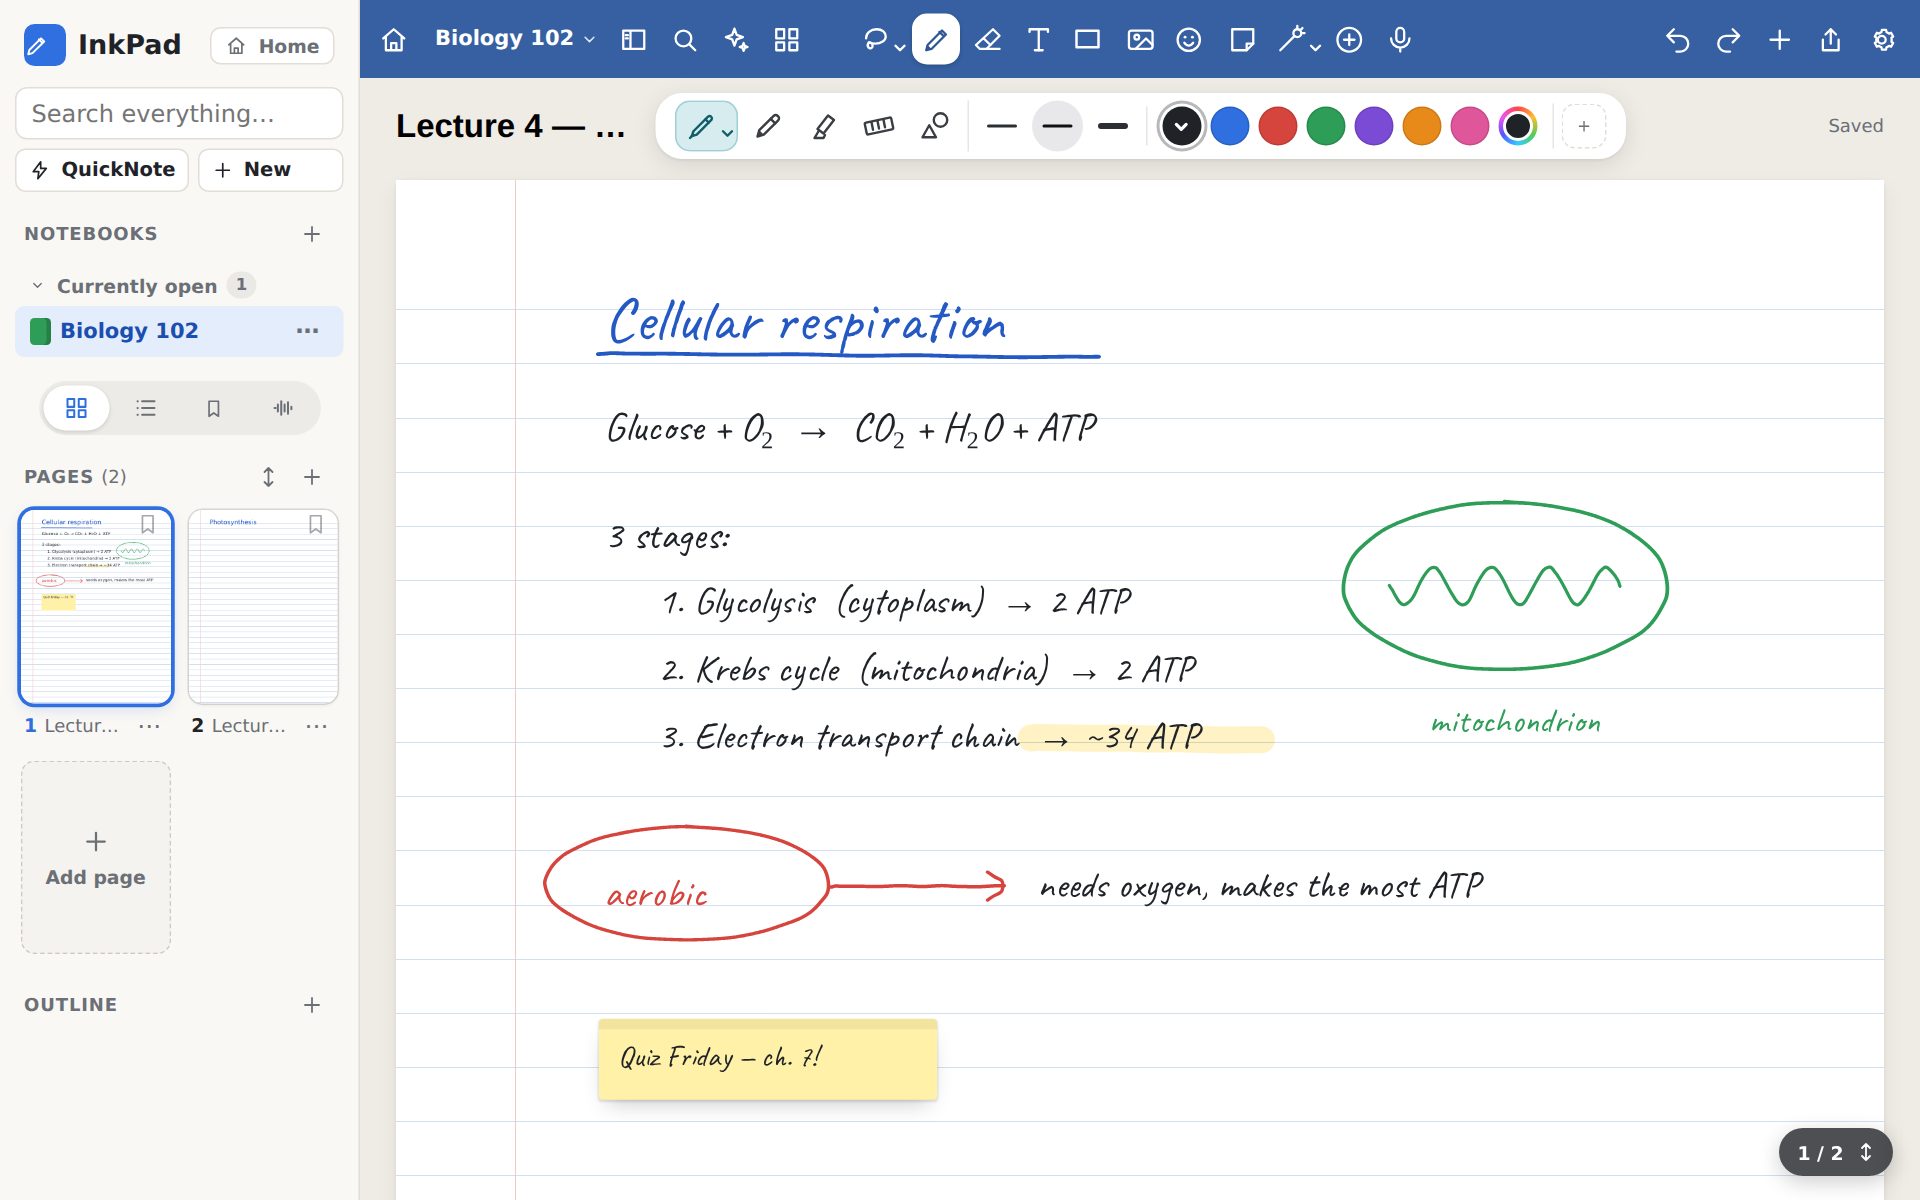 InkPad
Home
Search everything...
QuickNote
New
NOTEBOOKS
Currently open 1
Biology 102 ...
PAGES (2)
Cellular respiration
Photosynthesis
1 Lectur... ...
2 Lectur... ...
Add page
OUTLINE
Biology 102
Lecture 4 — ...
Saved
Cellular respiration
Glucose + O₂ → CO₂ + H₂O + ATP
3 stages:
1. Glycolysis (cytoplasm) → 2 ATP
2. Krebs cycle (mitochondria) → 2 ATP
3. Electron transport chain → ~34 ATP
mitochondrion
aerobic
needs oxygen, makes the most ATP
Quiz Friday – ch. 7!
1 / 2